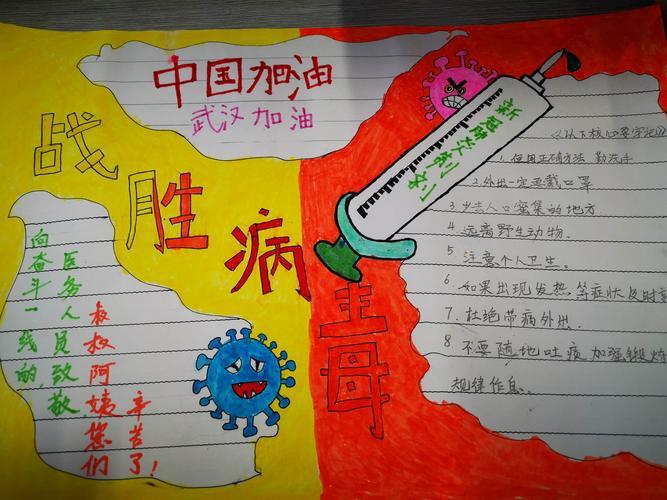 中国加油
武汉加油
战胜病毒
新冠肺炎制剂
向奋斗一线的
医务人员致敬
叔叔阿姨您们
辛苦了!
《以下核心要牢记》
1. 使用正确方法 勤洗手
2. 外出一定要戴口罩
3 少去人口密集的地方
4. 远离野生动物.
5. 注意个人卫生。
6. 如果出现发热等症状及时
7. 杜绝带病外出.
8 不要随地吐痰加强锻炼
规律作息。